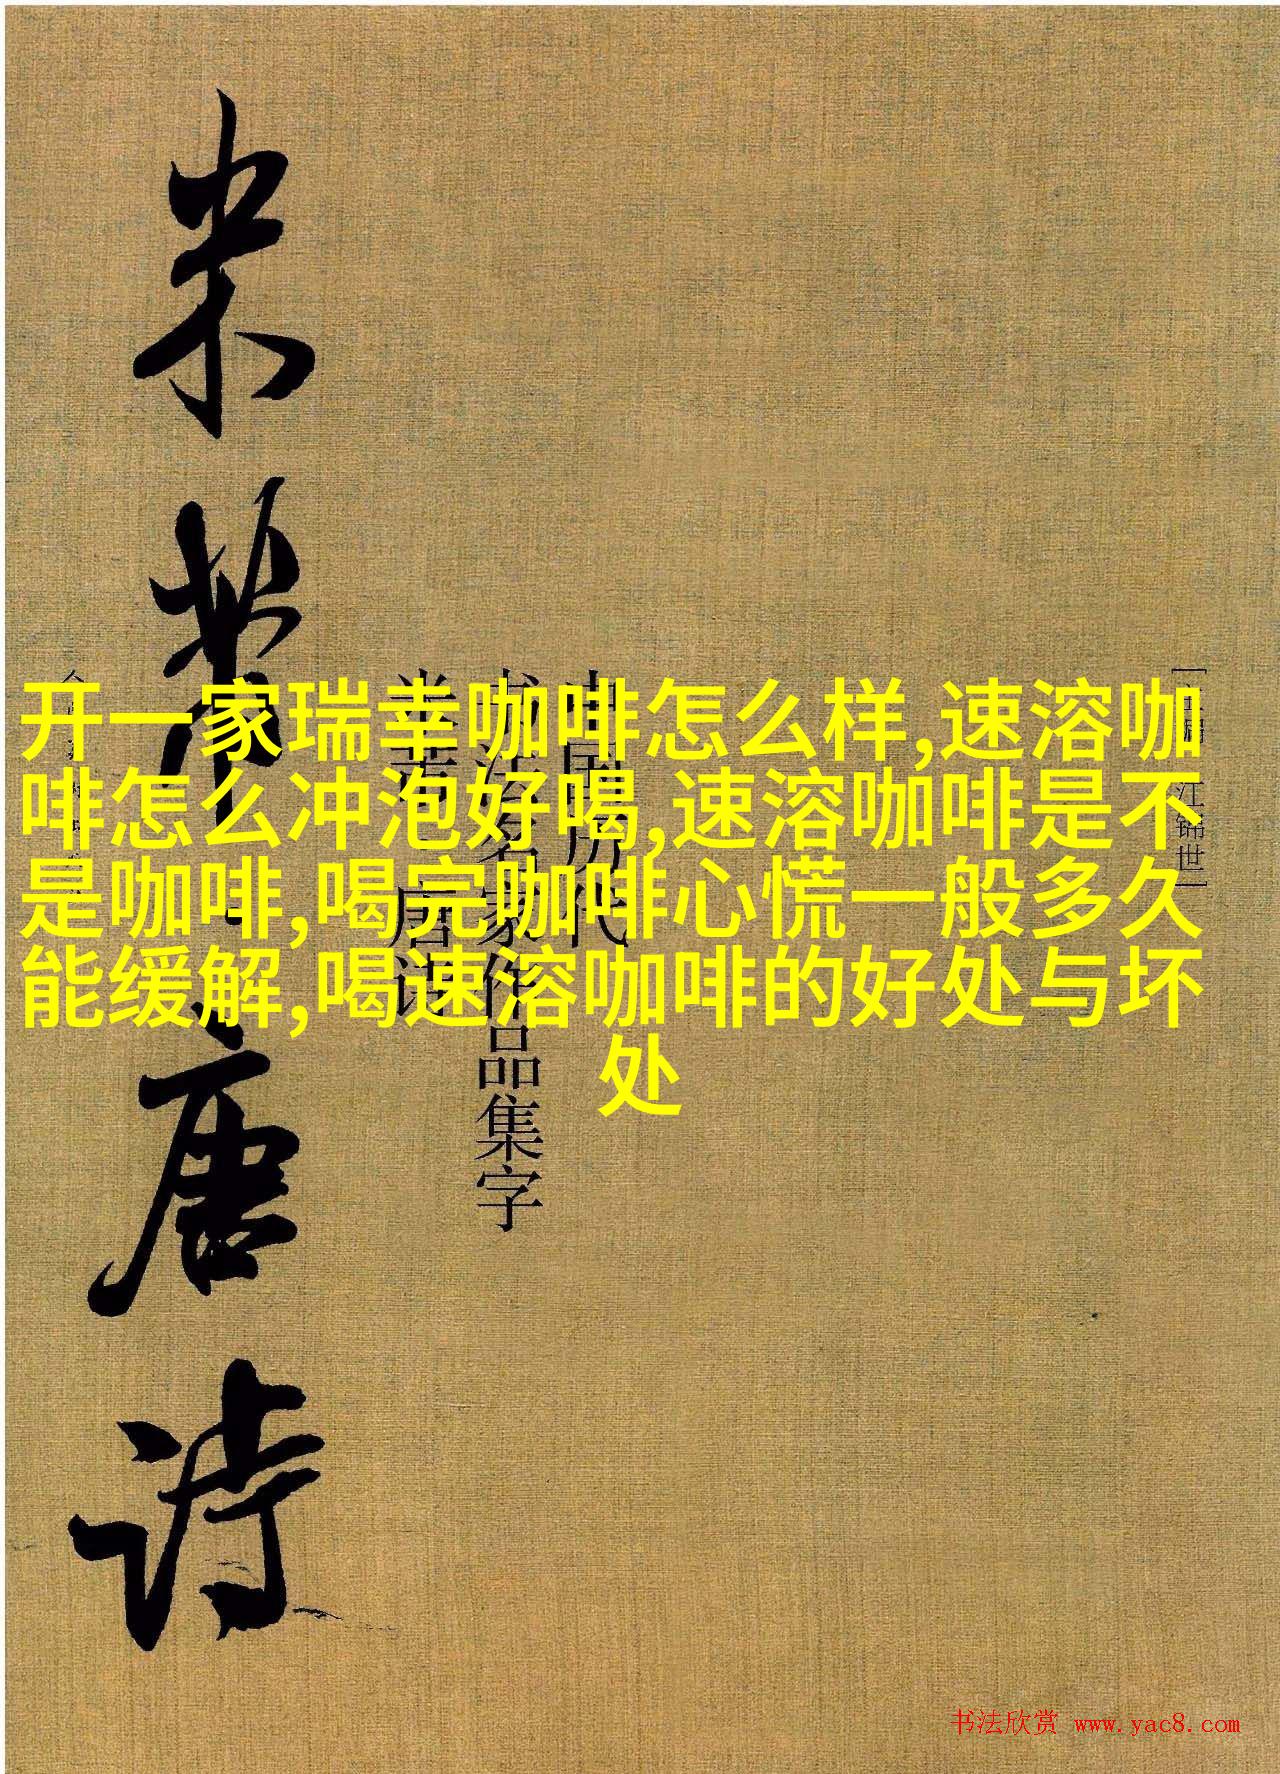 米芾·唐诗
开一家瑞幸咖啡怎么样,速溶咖
啡怎么冲泡好喝,速溶咖啡是不
是咖啡,喝完咖啡心慌一般多久
能缓解,喝速溶咖啡的好处与坏
处
中国历代
书法名家作品集字
米芾·唐诗
江锦世
书法欣赏 www.yac8.com